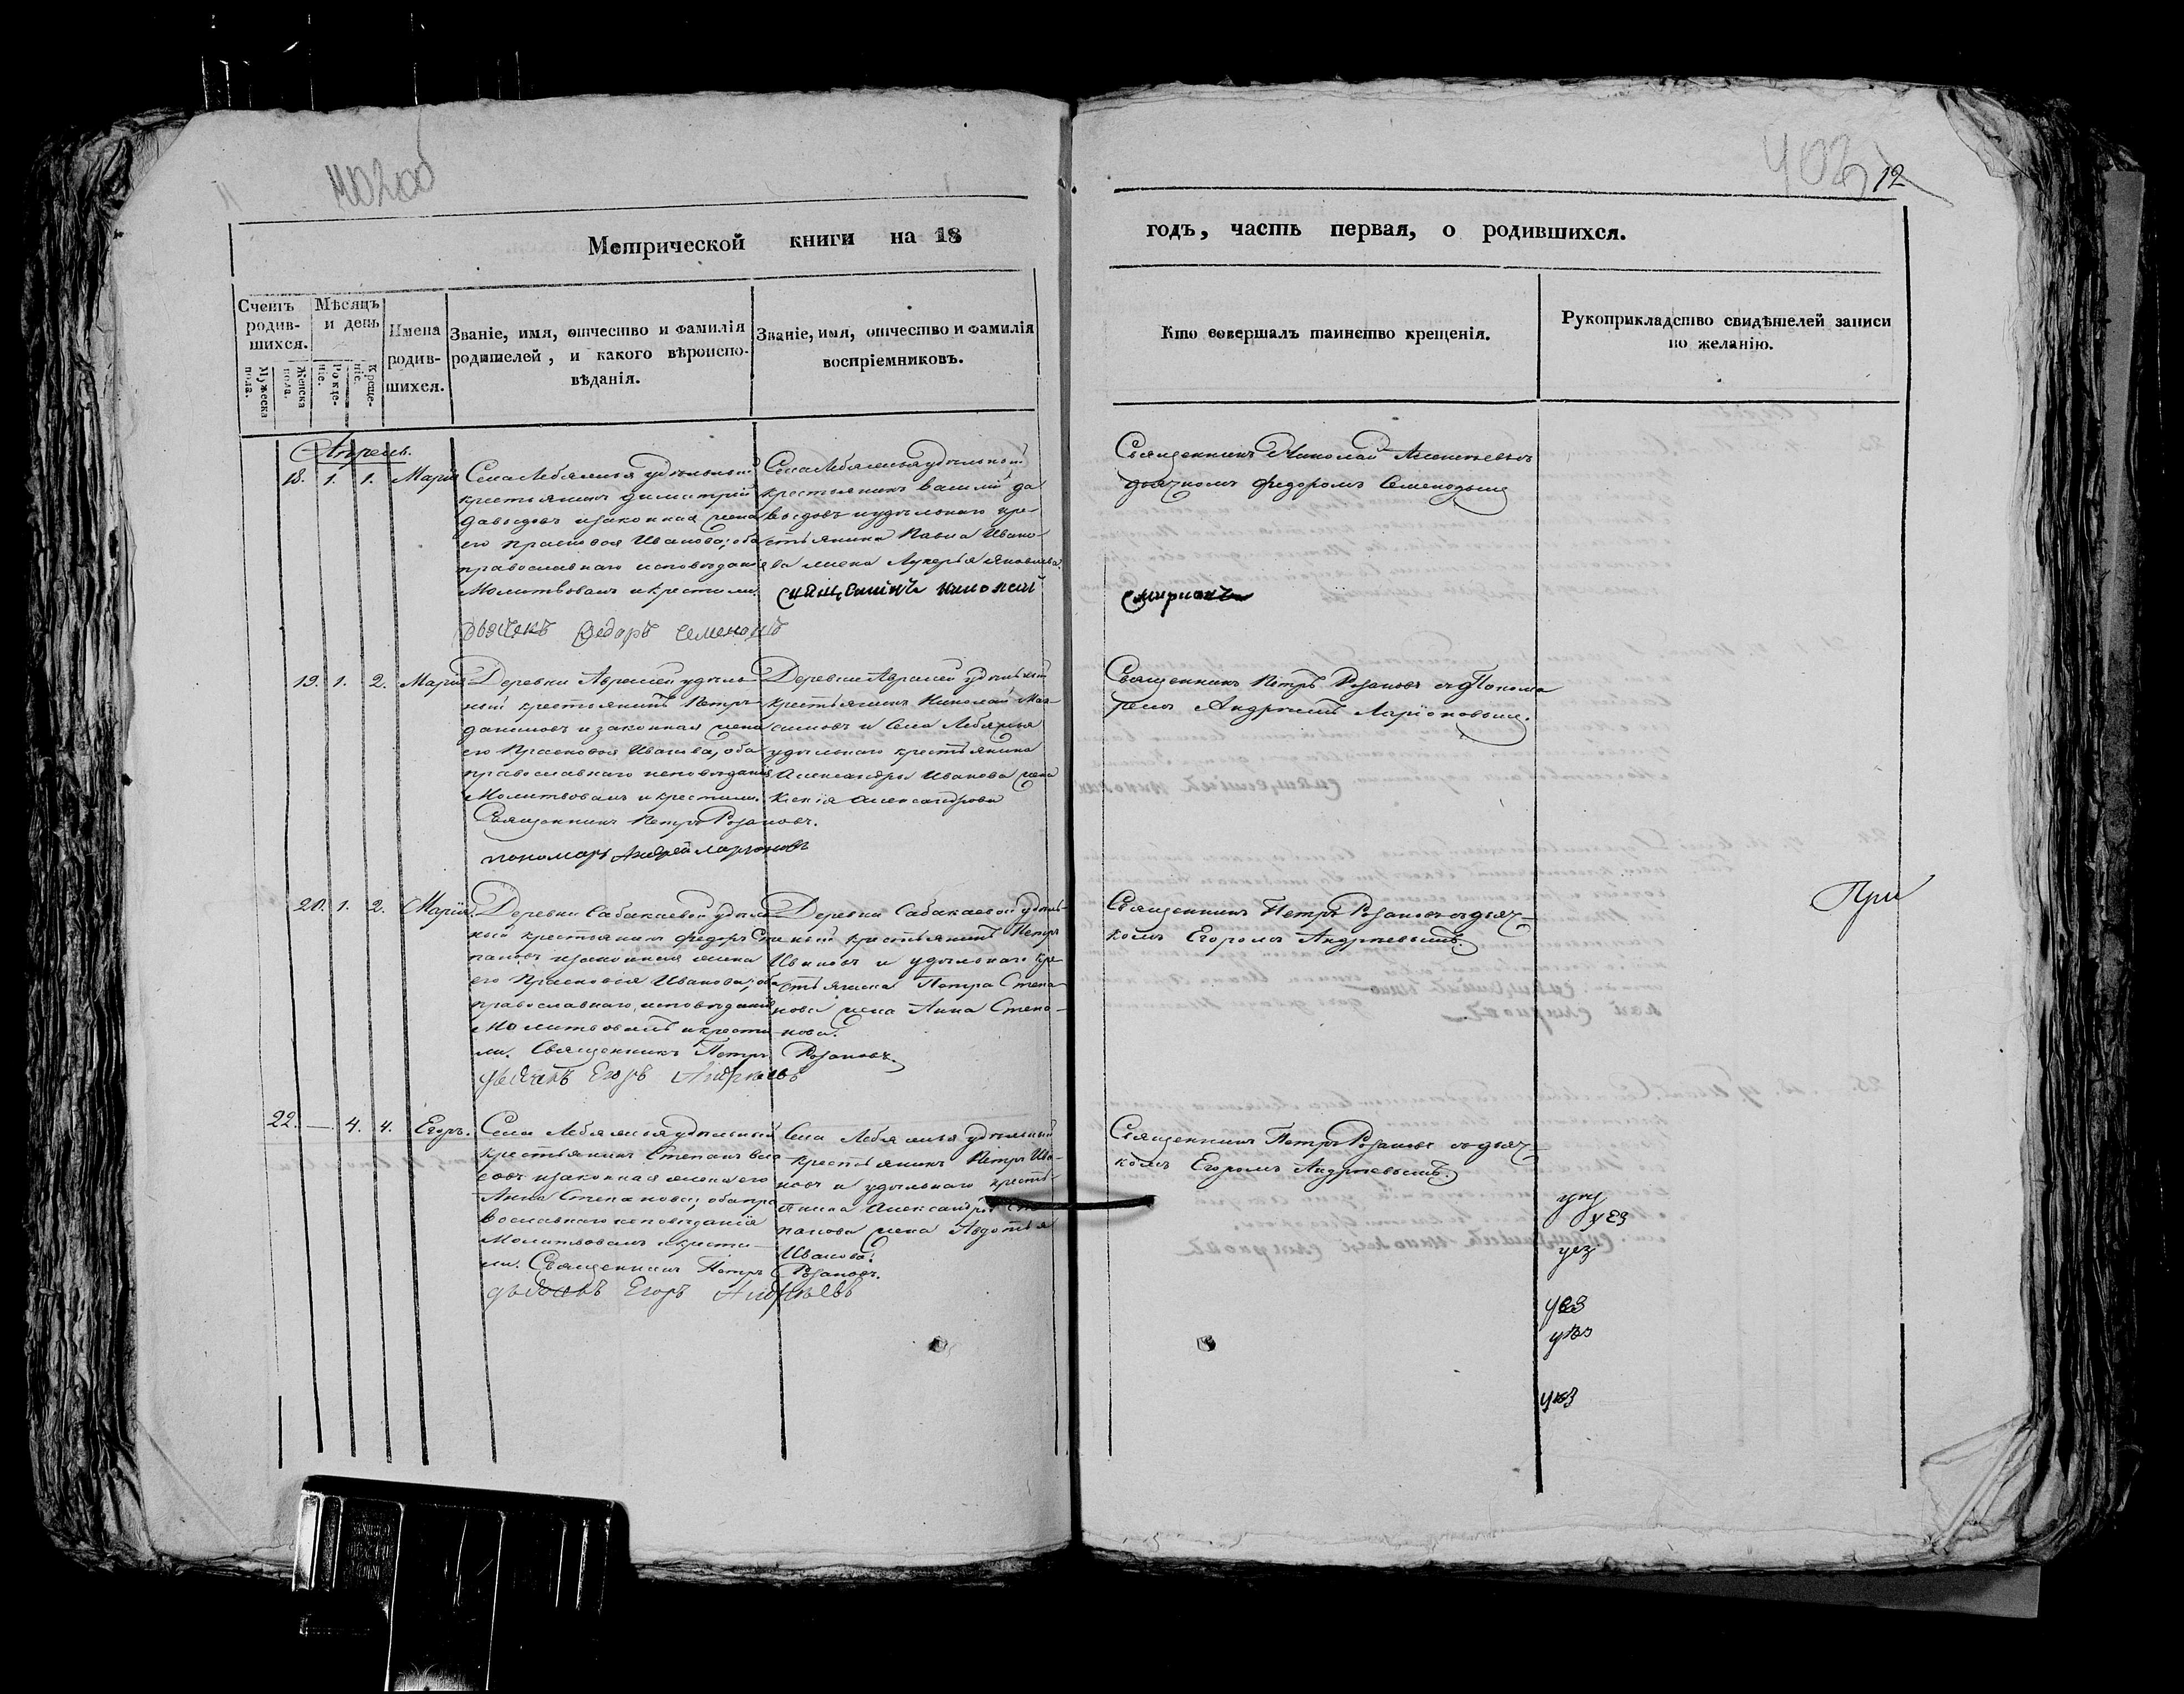 402об
403
12
Метрической книги на 18
годъ, часть первая, о родившихся.
Счетъ родив-
шихся.
Мужеска
пола.
Женска
пола.
Мѣсяцъ
и день
Рожде-
ніе.
Креще-
ніе.
Имена
родив-
шихся.
Званіе, имя, отчество и фамилія
родителей, и какого вѣроиспо-
вѣданія.
Званіе, имя, отчество и фамилія
воспріемниковъ.
Кто совершалъ таинство крещенія.
Рукоприкладство свидѣтелей записи
по желанію.
Апрель.
18. 1. 1. Марія
Села Лебяжья удѣльный
крестьянинъ Димитрій
Давыдовъ и законная жена
его Прасковья Иванова, оба
православнаго исповѣданія
Молитвовалъ и крестили
Села Лебяжья удѣльной
крестьянинъ Василій Да
выдовъ и удѣльнаго кре-
стьянина Павла Ивано-
ва жена Лукерья Яковлева.
священникъ николай
смирновъ
Дьячекъ Федоръ Семеновъ
Священникъ Николай
дьячкомъ Федоромъ Семеновымъ
19. 1. 2. Марія
Деревни Авралей удѣль
ный крестьянинъ Петръ
Даниловъ и законная жена
его Прасковья Иванова, оба
православнаго исповѣданія
Молитвовалъ и крестили.
Священникъ Петръ Розановъ.
пономарь Андрей Ларіоновъ
Деревни Авралей удѣльный
крестьянинъ Николай Мак-
симовъ и Села Лебяжья
удѣльнаго крестьянина
Александра Иванова жена
Ксенія Александрова
Священникъ Петръ Розановъ съ Понома
ремъ Андреемъ Ларіоновымъ.
20. 1. 2. Марія.
Деревни Сабакаевой удѣль
ный крестьянинъ Федоръ Сте
пановъ и законная жена
его Прасковья Иванова, оба
православнаго исповѣданія
Молитвовалъ и крести
ли. Священникъ Петръ Розановъ.
дьячекъ Егоръ Андреевъ
Деревни Сабакаевой удѣль-
ный крестьянинъ Петръ
Ивановъ и удѣльнаго кре
стьянина Петра Степа
нова жена Анна Степа-
нова.
Священникъ Петръ Розановъ съ дьяч-
комъ Егоромъ Андреевымъ.
При
22. — 4. 4. Егоръ.
Села Лебяжья удѣльный
крестьянинъ Степанъ Вла
совъ и законная жена его
Анна Степанова, оба пра
вославнаго исповѣданія
Молитвовалъ и крести
ли. Священникъ Петръ Розановъ.
дьячекъ Егоръ Андреевъ
Села Лебяжья удѣльный
крестьянинъ Петръ Ива-
новъ и удѣльнаго кресть-
янина Александра Сте
панова жена Авдотья
Иванова.
Священникъ Петръ Розановъ съ дьяч
комъ Егоромъ Андреевымъ.
уез
уез
уез